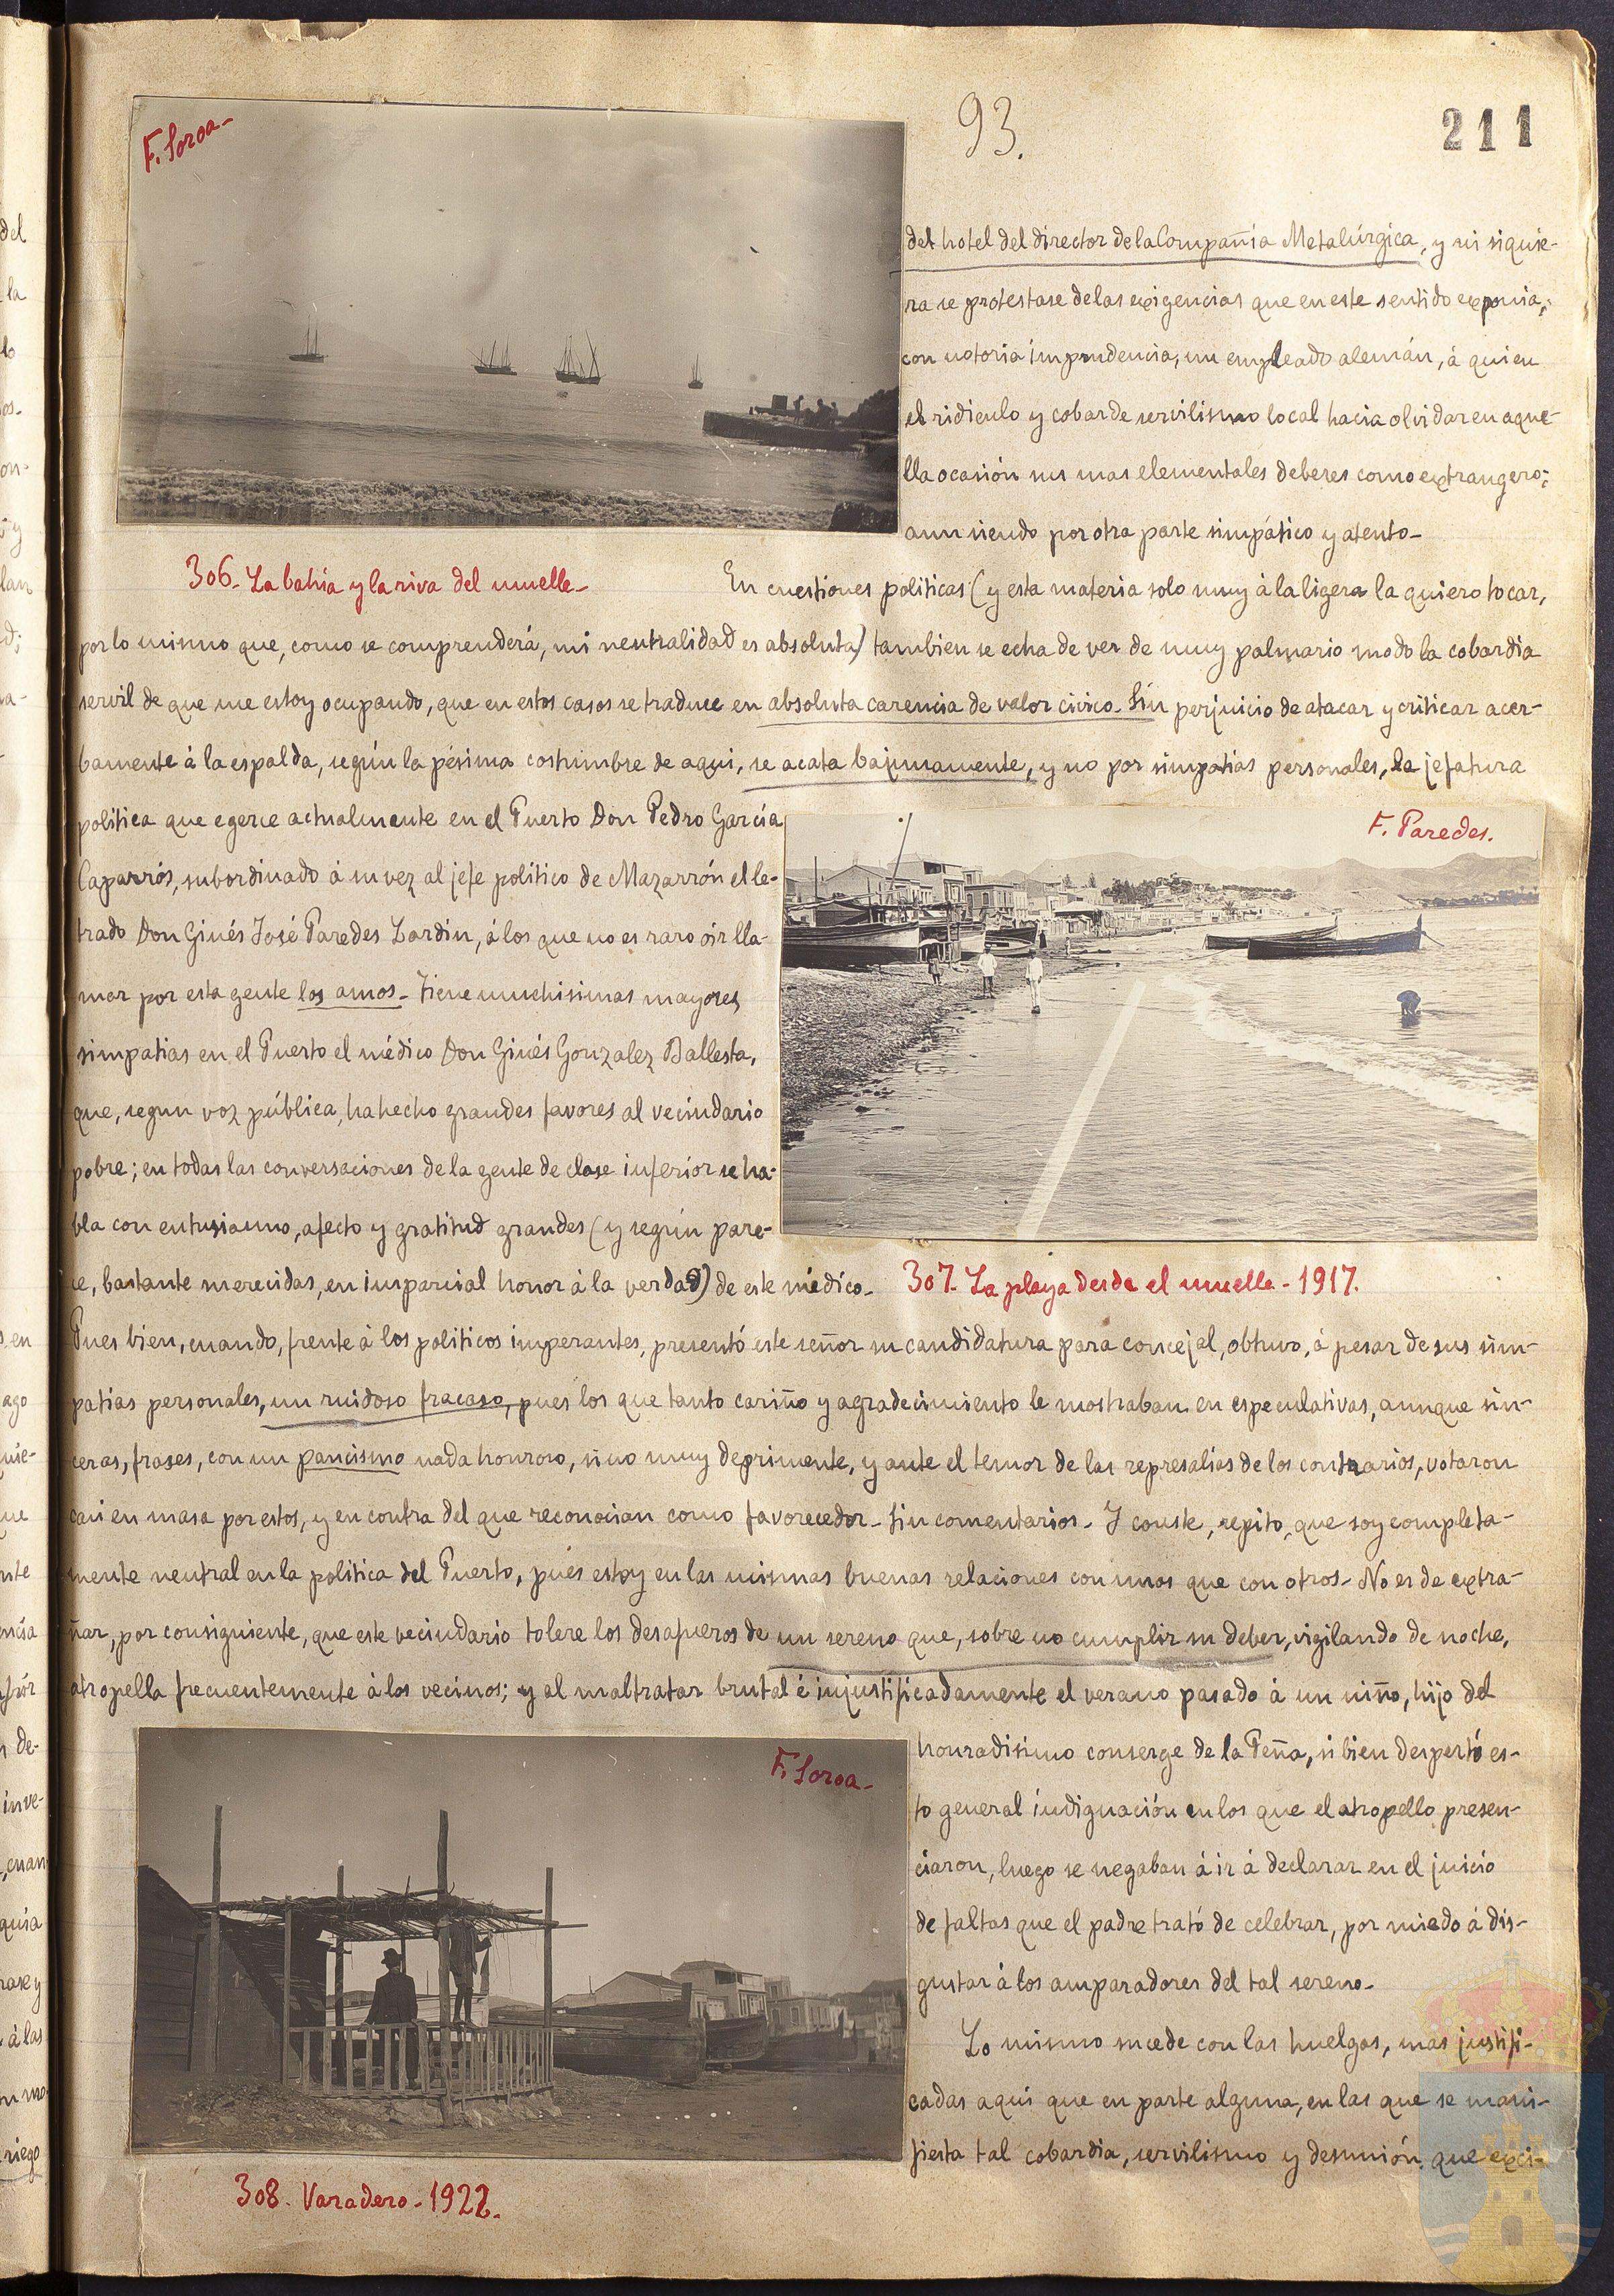 93.
211
F. Soroa-
del hotel del director de la Compañía Metalúrgica, y ni siquie-
ra se protestase de las exigencias que en este sentido exponia,
con notoria imprudencia, un empleado alemán, á quien
el ridiculo y cobarde servilismo local hacia olvidar en aque-
lla ocasión sus mas elementales deberes como extrangero;
aun siendo por otra parte simpático y atento-
306- La bahia y la riva del muelle-
En cuestiones politicas (y esta materia solo muy á la ligera la quiero tocar,
por lo mismo que, como se comprenderá, mi neutralidad es absoluta) tambien se echa de ver de muy palmario modo la cobardia
servil de que me estoy ocupando, que en estos casos se traduce en absoluta carencia de valor civico- Sin perjuicio de atacar y criticar acer-
bamente á la espalda, según la pésima costumbre de aqui, se acata bajunamente, y no por simpatias personales, la jefatura
politica que egerce actualmente en el Puerto Don Pedro García
Caparrós, subordinado á su vez al jefe politico de Mazarrón el le-
trado Don Ginés José Paredes Lardin, á los que no es raro oir lla-
mar por esta gente los amos- Tiene muchisimas mayores
simpatias en el Puerto el médico Don Ginés Gonzalez Ballesta,
que, segun voz pública, ha hecho grandes favores al vecindario
pobre; en todas las conversaciones de la gente de clase inferior se ha-
bla con entusiasmo, afecto y gratitud grandes (y según pare-
ce, bastante merecidas, en imparcial honor á la verdad) de este médico-
F. Paredes.
307- La playa desde el muelle- 1917.
Pues bien, cuando, frente á los politicos imperantes, presentó este señor su candidatura para concejal, obtuvo, á pesar de sus sim-
patias personales, un ruidoso fracaso, pues los que tanto cariño y agradecimiento le mostraban en especulativas, aunque sin-
ceras, frases, con un pancismo nada honroso, sino muy deprimente, y ante el temor de las represalias de los contrarios, votaron
casi en masa por estos, y en contra del que reconocian como favorecedor- Sin comentarios- Y conste, repito, que soy completa-
mente neutral en la politica del Puerto, pués estoy en las mismas buenas relaciones con unos que con otros- No es de extra-
ñar, por consiguiente, que este vecindario tolere los desafueros de un sereno que, sobre no cumplir su deber, vigilando de noche,
atropella frecuentemente á los vecinos; y al maltratar brutal é injustificadamente el verano pasado á un niño, hijo del
honradisimo conserge de la Peña, si bien despertó es-
to general indignación en los que el atropello presen-
ciaron, luego se negaban á ir á declarar en el juicio
de faltas que el padre trató de celebrar, por miedo á dis-
gustar á los amparadores del tal sereno-
Lo mismo sucede con las huelgas, mas justifi-
cadas aqui que en parte alguna, en las que se mani-
fiesta tal cobardia, servilismo y desunión que exci-
F. Soroa-
308- Varadero- 1922-